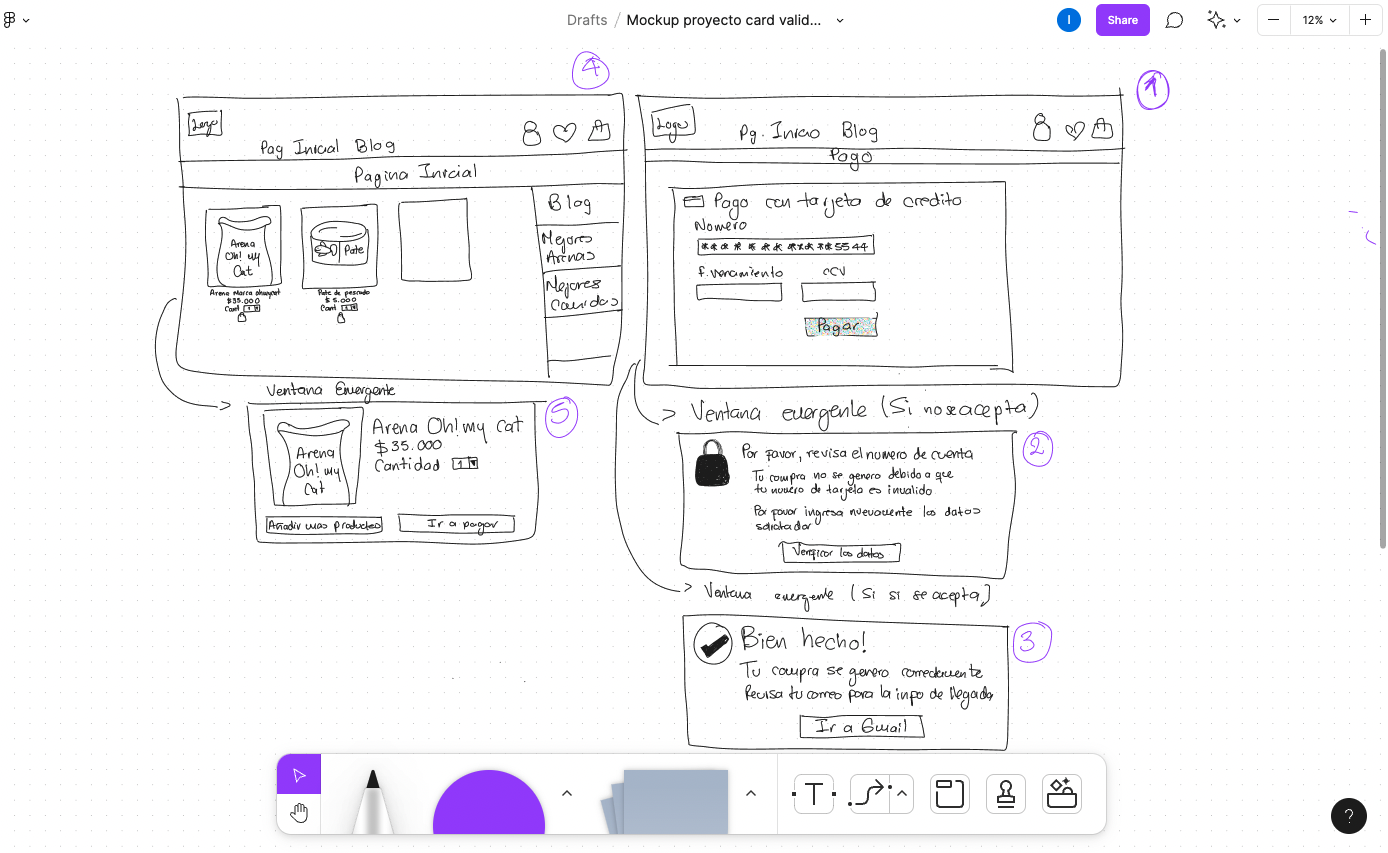 Drafts / Mockup proyecto card valid...
I
Share
12%
4
Logo
Pag Inicial Blog
Pagina Inicial
Arena
Oh! my
Cat
Arena Marca ohmycat
$35.000
Cant 1
Pate
Pate de pescado
$ 5.000
Cant 1
Blog
Mejores
Arenas
Mejores
Comidas
Ventana Emergente
5
Arena
Oh! my
Cat
Arena Oh! my cat
$35.000
Cantidad 1
Añadir mas productos
Ir a pagar
1
Logo
Pg. Inicio Blog
Pago
Pago con tarjeta de credito
Numero
5544
f. vencimiento
CCV
Pagar
Ventana emergente (Si no se acepta)
2
Por favor, revisa el numero de cuenta
Tu compra no se genero debido a que
tu numero de tarjeta es invalido
Por favor ingresa nuevamente los datos
Verificar los datos
Ventana emergente (Si si se acepta)
3
Bien hecho!
Tu compra se genero
Revisa tu correo para la info de llegada
Ir a Gmail
T
?